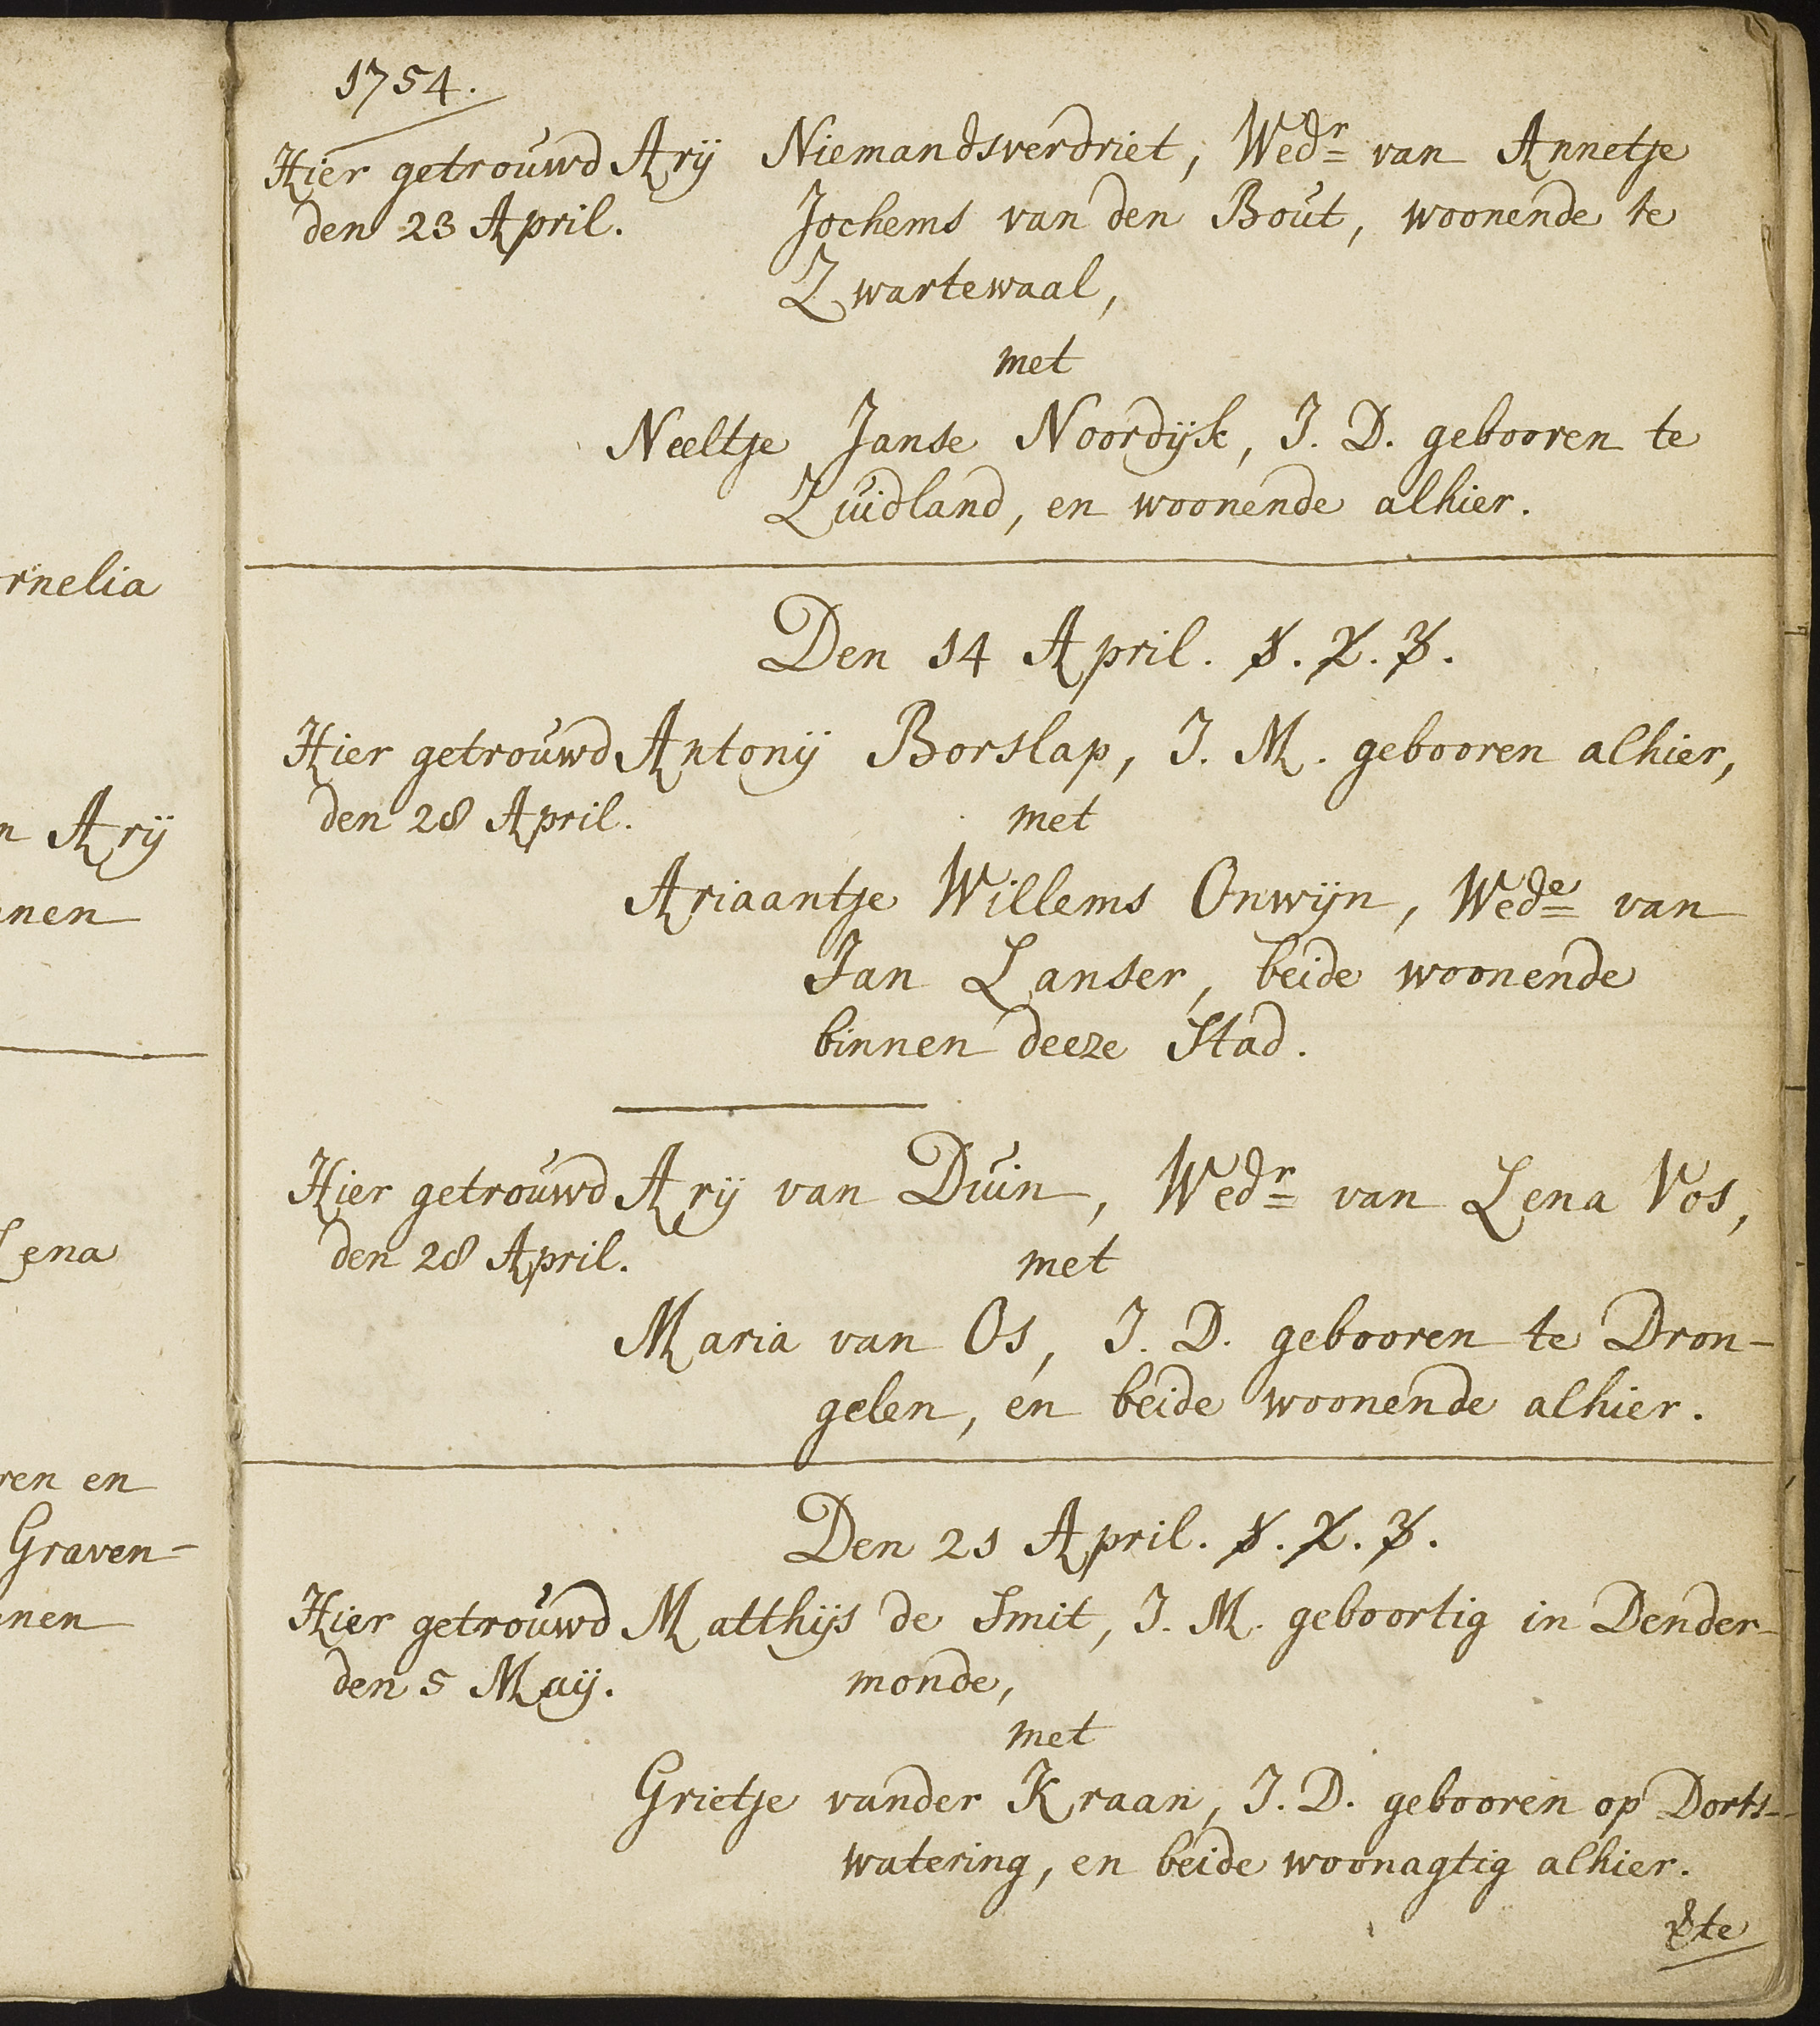 rnelia
n Arij
nen
Lena
ren en
Graven-
nen
1754.
Hier getrouwd
den 23 April.
Arij Niemandsverdriet, Wedr van Annetje
Jochems van den Bout, woonende te
Zwartewaal,
met
Neeltje Janse Noordijk, J. D. gebooren te
Zuidland, en woonende alhier.
Den 14 April. 1. 2. 3.
Hier getrouwd
den 28 April.
Antonij Borslap, J. M. gebooren alhier,
met
Ariaantje Willems Onwijn, Wede van
Jan Lanser, beide woonende
binnen deeze Stad.
Hier getrouwd
den 28 April.
Arij van Duin, Wedr van Lena Vos,
met
Maria van Os, J. D. gebooren te Dron-
gelen, en beide woonende alhier.
Den 21 April. 1. 2. 3.
Hier getrouwd
den 5 Maij.
Matthijs de Smit, J. M. geboortig in Dender-
monde,
met
Grietje vander Kraan, J. D. gebooren op Dorts-
watering, en beide woonagtig alhier.